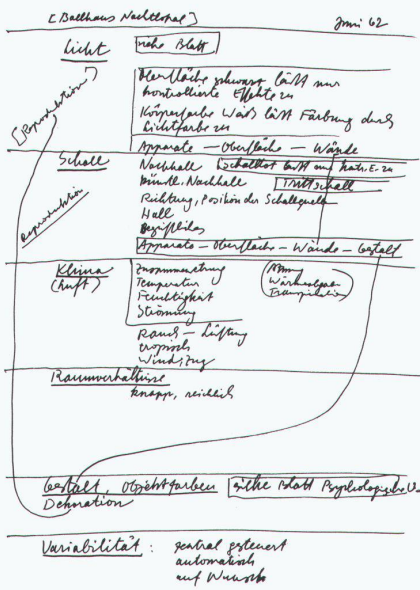 [Ballhaus Nachtlokal] Juni 62
Licht siehe Blatt
[Reproduktion]
Oberfläche schwarz läßt nur
kontrollierte Effekte zu
Körperfarbe Weiß läßt Färbung durch
Lichtfarbe zu
Apparate – Oberfläche – Wände
Schall Nachhall schalltot läßt nur kontr. E. zu
künstl. Nachhall Trittschall
Reproduktion
Richtung, Position der Schallquelle
Hall
Apparate – Oberfläche – Wände – Gestalt
Klima Zusammensetzung Atmung
(Luft) Temperatur Wärmeabgabe
Feuchtigkeit Transpiration
Strömung
Rauch – Lüftung
tropisch
Windzug
Raumverhältnisse
knapp, reichlich
Gestalt Objektfarben siehe Blatt Psychologische
Dekoration
Variabilität : zentral gesteuert
automatisch
auf Wunsch